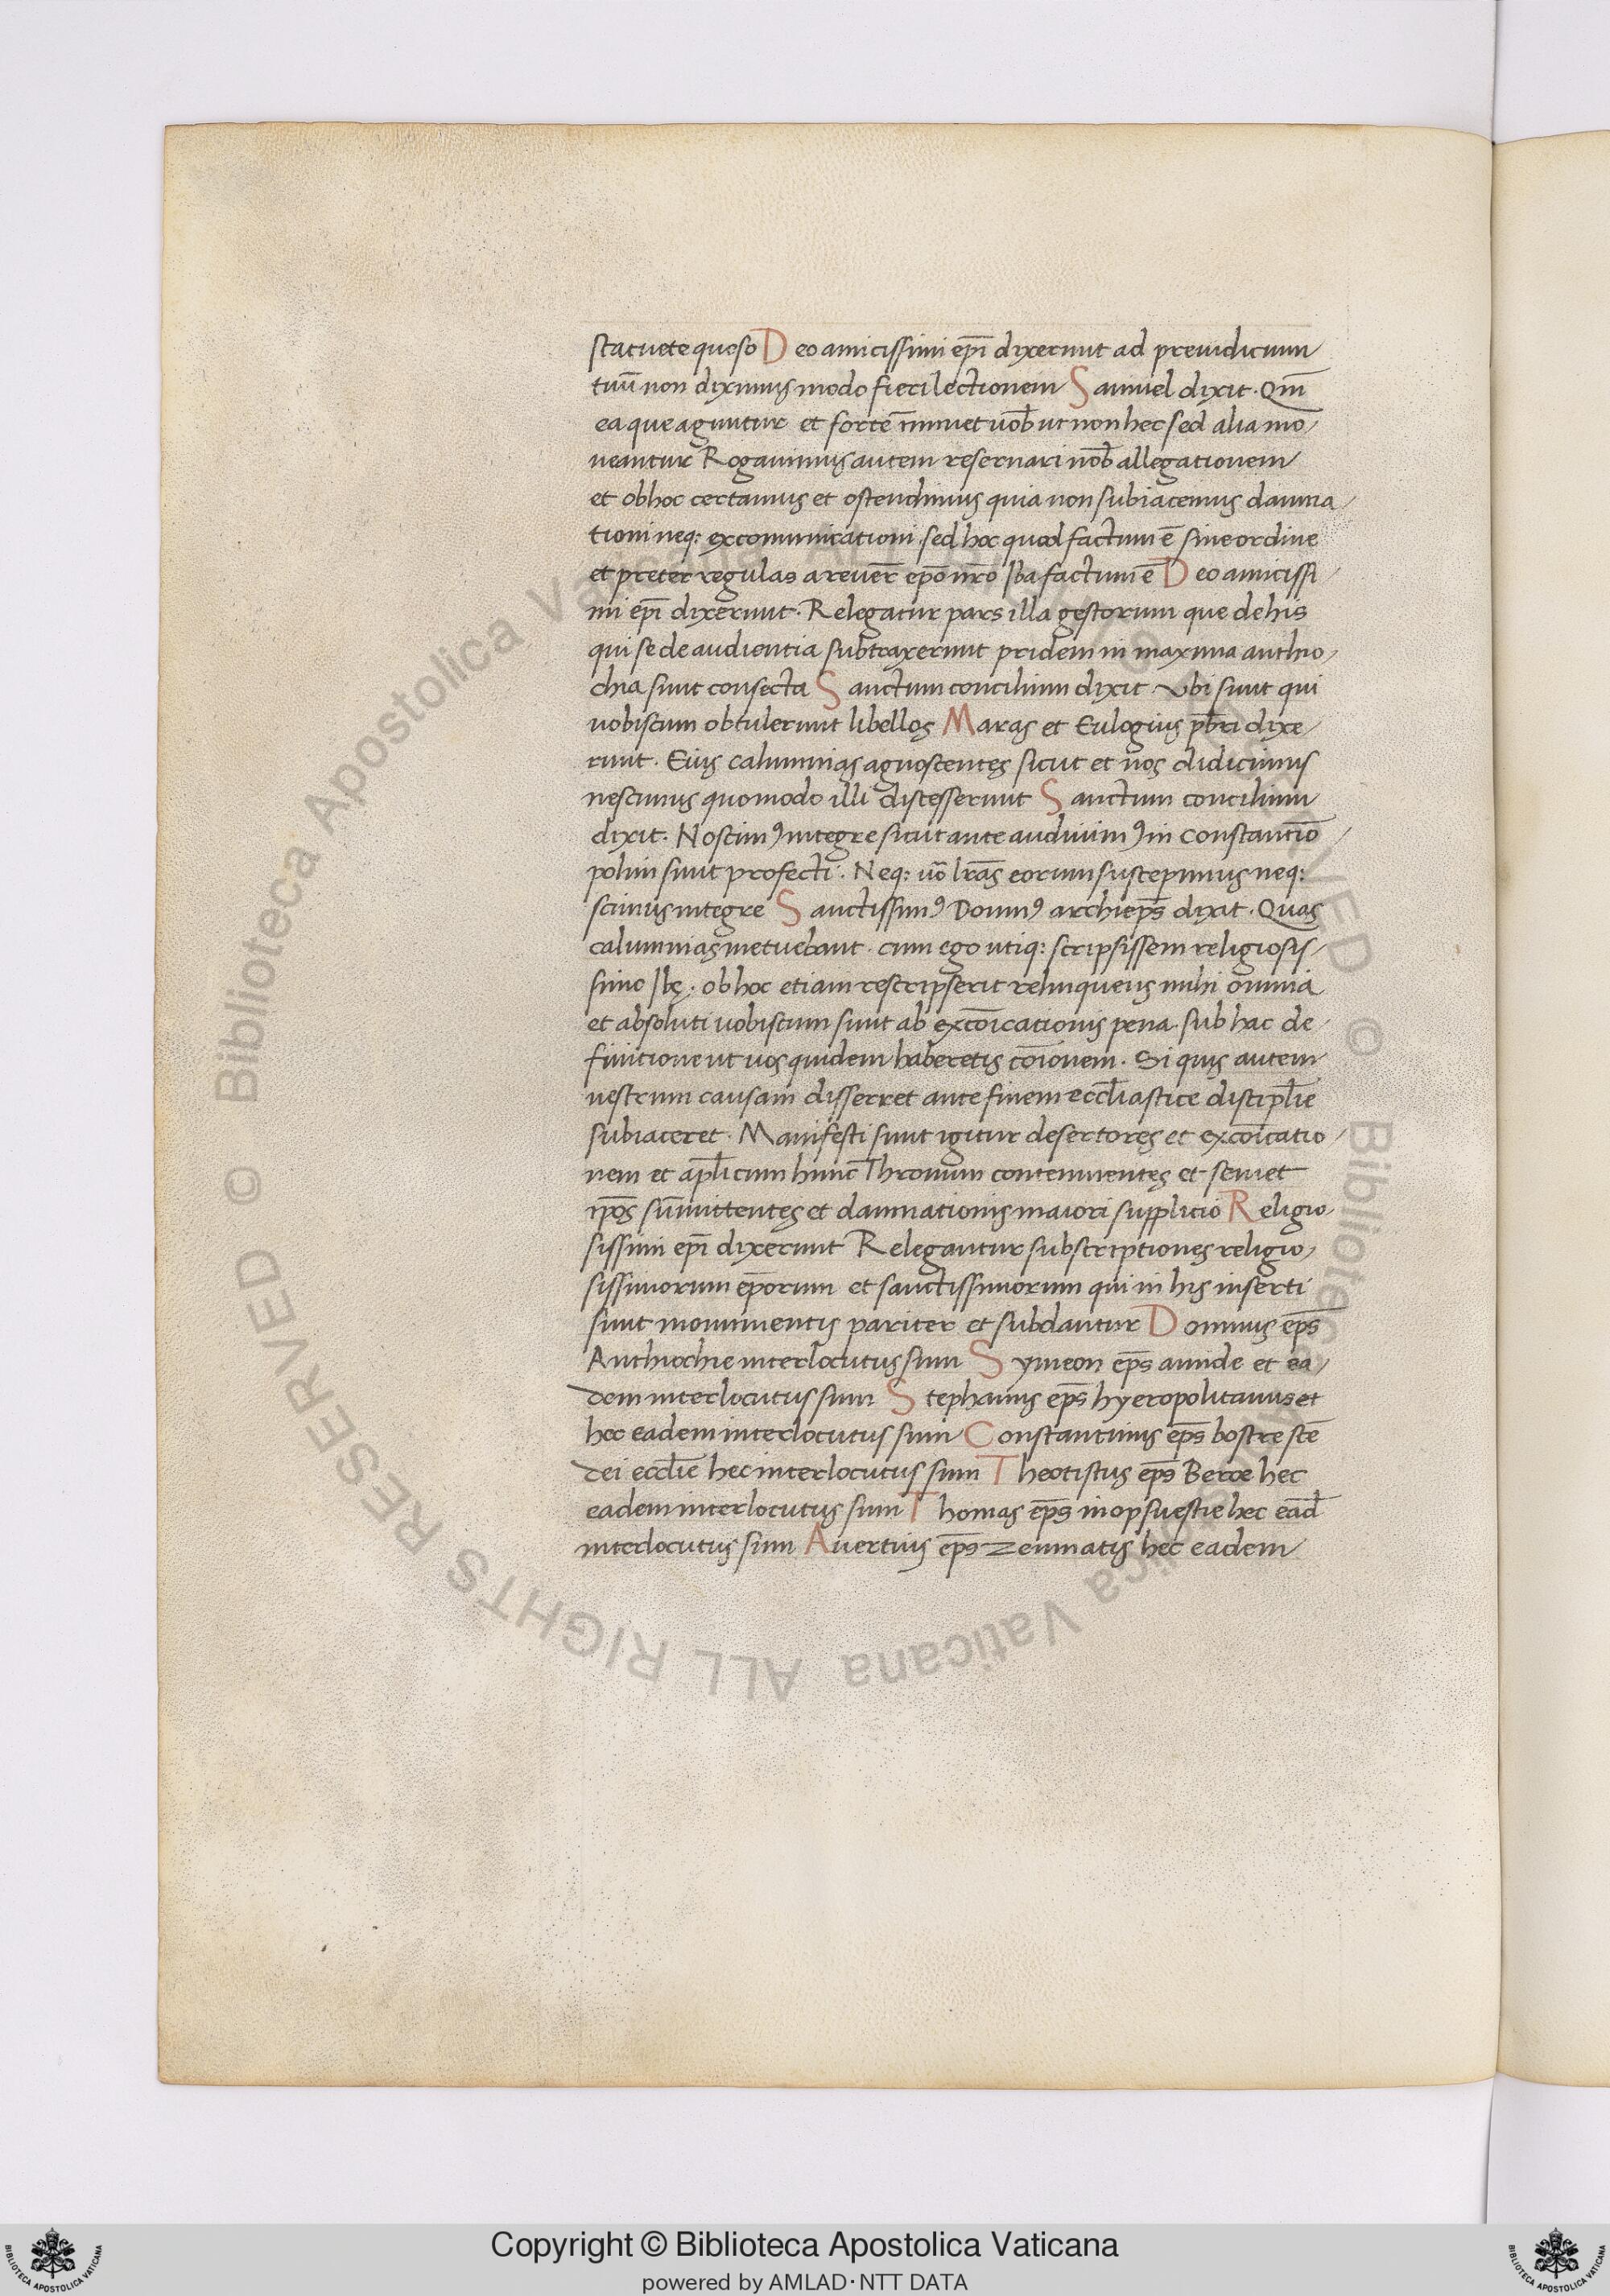 statuete queso Deo amicissimi ep̄i dixerunt ad preiudicium
tuū non diximus modo fieri lectionem Samuel dixit. Qm̄
ea que aguntur et forte īminet uob̄ ut non hec sed alia mo
ueantur Rogauimus autem reseruari nob̄ allegationem
et ob hoc certamus et ostendimus quia non subiacemus damna
tioni neq: excomunicationi sed hoc quod factum ē sine ordine
et preter regulas a reuer̄ ep̄o nr̄o Iba factum ē Deo amicissi
mi ep̄i dixerunt. Relegatur pars illa gestorum que de his
qui se de audientia subtraxerunt pridem in maxima anthio
chia sunt confecta Sanctum concilium dixit Vbi sunt qui
uobiscum obtulerunt libellos Maras et Eulogius pb̄ri dixe
runt. Eius calumnias agnoscentes sicut et nos didicimus
nescimus quomodo illi discesserunt Sanctum concilium
dixit. Noscimꝰ integre sicut ante audiuimꝰ in Constantīo
polim sunt profecti. Neq: uō lr̄as eorum suscepimus neq:
scimus integre Sanctissimꝰ Domnꝰ archiep̄s dixit. Quas
calumnias metuebant. cum ego utiq: scripsissem religiosis
simo Ibę. ob hoc etiam rescripserit relinquens mihi omnia
et absoluti uobiscum sunt ab excōicationis pena. sub hac de
finitione ut uos quidem haberetis cōionem. Si quis autem
uestrum causam disserret ante finem eccl̄iastice discipl̄ie
subiaceret. Manifesti sunt igitur desertores et excōicatio
nem et apl̄icum hunc Thronum contemnentes et semet
ip̄os sūmittentes et damnationis maiori supplicio Religio
sissimi ep̄i dixerunt Relegantur subscriptiones religio
sissimorum ep̄orum et sanctissimorum qui in his inserti
sunt monumentis pariter et subdantur Domnus ep̄s
Anthiochie interlocutus sum Symeon ep̄s amide et ea
dem interlocutus sum Stephanus ep̄s hyeropolitanus et
hec eadem interlocutus sum Constantinus ep̄s bostre scē
dei eccl̄ie hec interlocutus sum Theotistus ep̄s Beroe hec
eadem interlocutus sum Thomas ep̄s mopsuestie hec ead̄
interlocutus sum Auertius ep̄s zeumatis hec eadem
Copyright © Biblioteca Apostolica Vaticana
powered by AMLAD·NTT DATA
© Biblioteca Apostolica Vaticana ALL RIGHTS RESERVED
© Biblioteca Apostolica Vaticana ALL RIGHTS RESERVED
BIBLIOTECA APOSTOLICA VATICANA
BIBLIOTECA APOSTOLICA VATICANA